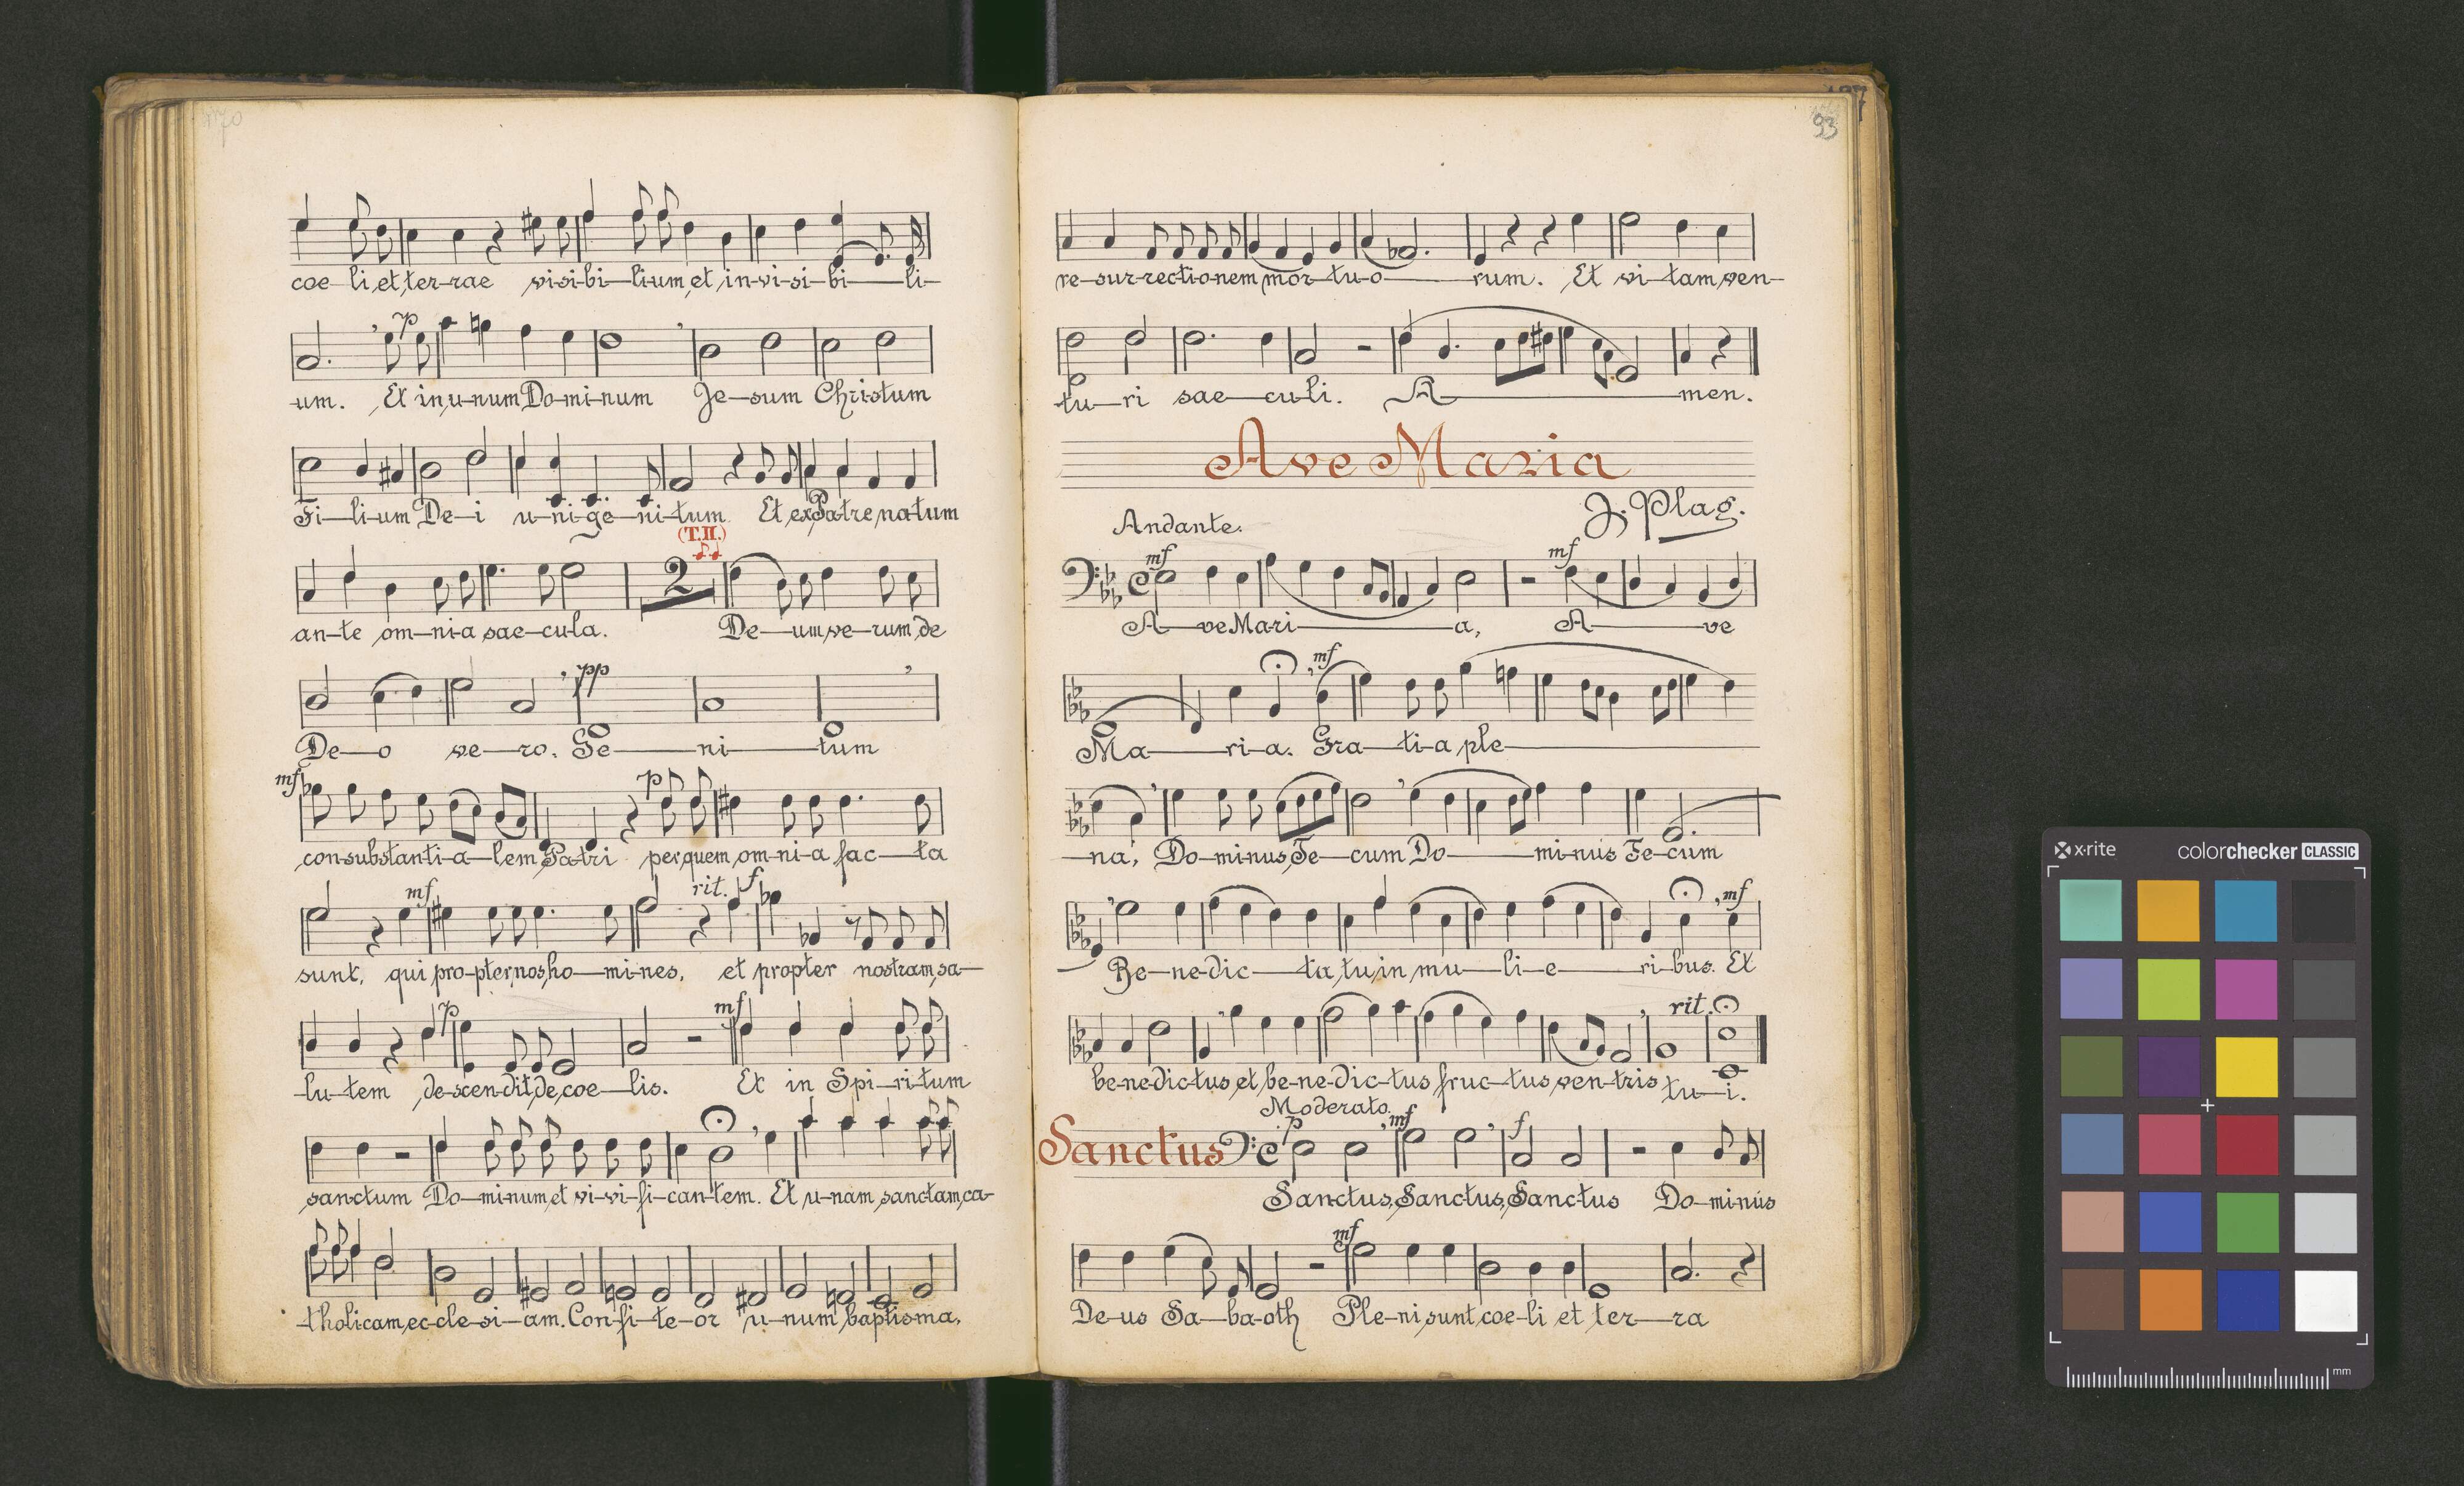 170
coe-li, et, ter-rae vi-si-bi-li-um, et, in-vi-si-bi-li-
p
um. Et in, u-num, Do-mi-num Je-sum Christum
Fi-li-um De-i u-ni-ge-ni-tum Et ex, Pa-tre, na-tum
(T.II.)
2
an-te om-ni-a sae-cu-la. De-um, ve-rum, de
pp
De-o ve-ro. Ge-ni-tum
mf p
con-substanti-a-lem, Pa-tri per, quem, om-ni-a fac-ta
mf rit. f
sunt, qui, pro-pter, nos, ho-mi-nes, et propter nostram, sa-
p mf
lu-tem de-scen-dit, de, coe-lis. Et in Spi-ri-tum
sanctum Do-mi-num, et vi-vi-fi-can-tem. Et, u-nam, sanctam, ca-
tholicam, ec-cle-si-am. Con-fi-te-or u-num, baptis-ma,
93
re-sur-recti-o-nem, mor-tu-o-rum. Et vi-tam, ven-
tu-ri sae-cu-li. A-men.
Ave Maria
J. Plag.
Andante.
mf mf
A-ve Mari-a, A-ve
mf
Ma-ri-a. Gra-ti-a, ple-
-na, Do-mi-nus, Te-cum Do-mi-nus Te-cum
mf
Be-ne-dic-ta, tu, in, mu-li-e-ri-bus. Et
rit.
be-ne-dic-tus, et, be-ne-dic-tus fruc-tus, ven-tris tu-i.
Moderato.
Sanctus p mf f
Sanctus, Sanctus, Sanctus Do-mi-nus
mf
De-us Sa-ba-oth Ple-ni, sunt, coe-li et ter-ra
x-rite colorchecker CLASSIC
mm